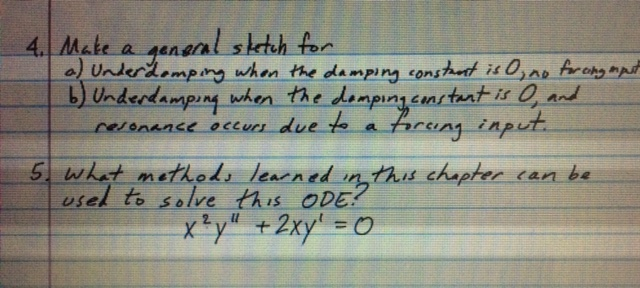 4. Make a general sketch for
a) Underdamping when the damping constant is 0, no forcing input
b) Underdamping when the damping constant is 0, and
resonance occurs due to a forcing input.
5. What methods learned in this chapter can be
used to solve this ODE?
x²y" + 2xy' = 0